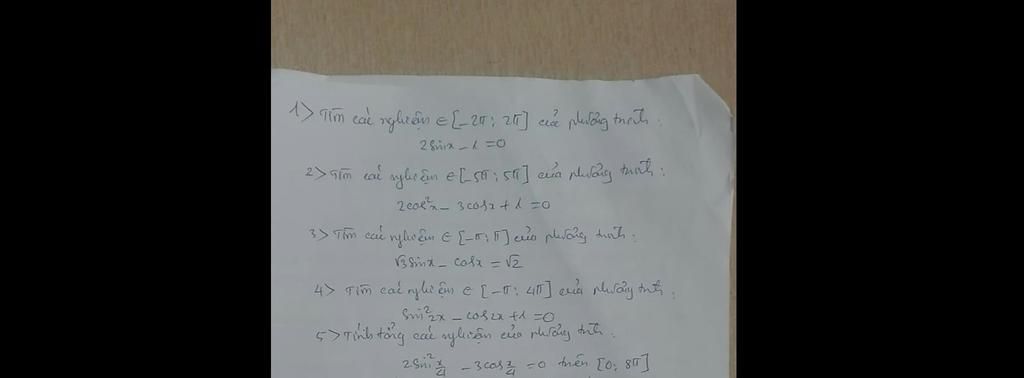 1> Tìm các nghiệm ∈ [-2π; 2π] của phương trình:
2sinx - 1 = 0
2> Tìm các nghiệm ∈ [-5π; 5π] của phương trình:
2cos²x - 3cosx + 1 = 0
3> Tìm các nghiệm ∈ [-π; π] của phương trình:
√3sinx - cosx = √2
4> Tìm các nghiệm ∈ [-π; 4π] của phương trình:
sin²2x - cos2x + 1 = 0
5> Tính tổng các nghiệm của phương trình:
2sin²x/4 - 3cosx/4 = 0 trên [0; 8π]